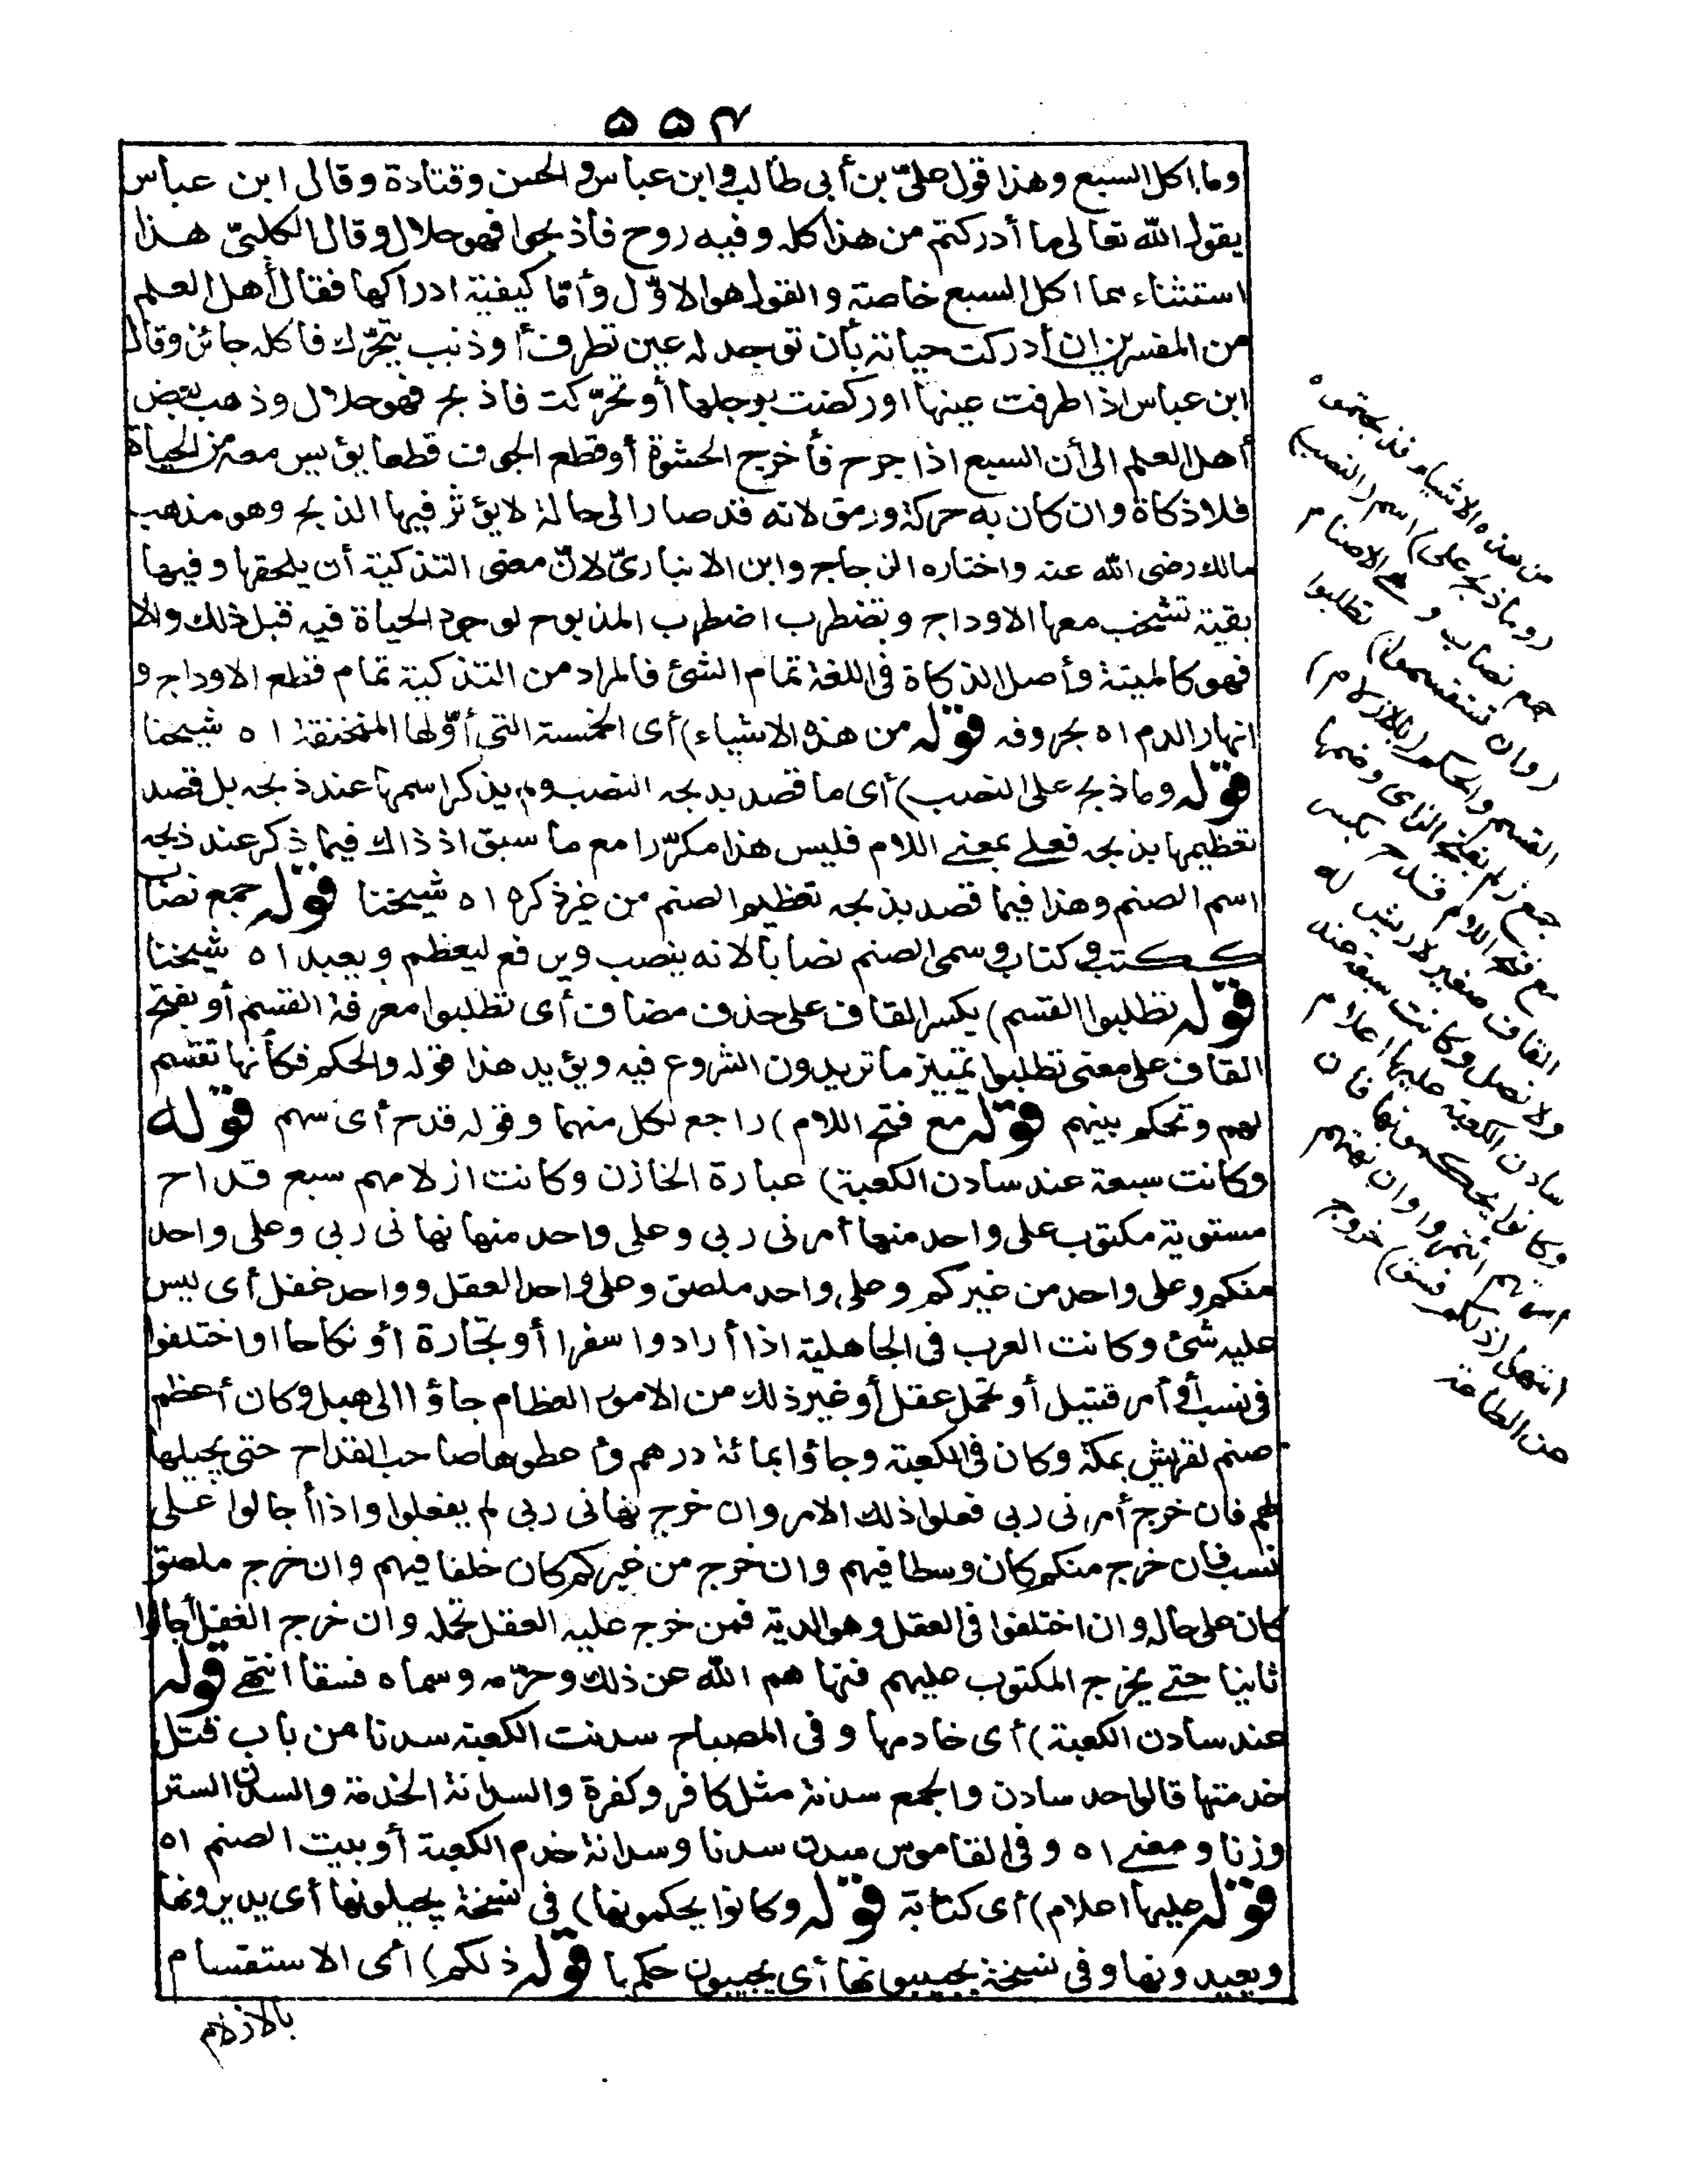 ٥٥٤
وما اكل السبع وهذا قول علىّ بن أبى طالب وابن عباس والحسن وقتادة وقال ابن عباس
يقول الله تعالى ما أدركتم من هذا كله وفيه روح فأذبحوا فهو حلال وقال الكلبىّ هذا
استثناء مما اكل السبع خاصة والقول هو الاوّل وأمّا كيفية ادراكها فقال أهل العلم
من المفسرين ان أدركت حياته بأن توجد له عين تطرف أو ذنب يتحرّك فاكله جائز وقال
ابن عباس اذا طرفت عينها او ركضت برجلها أو تحرّكت فاذبح فهو حلال وذهب بعض
أهل العلم الى أن السبع اذا جرح فأخرج الحشوة أو قطع الجوف قطعا يؤيس معه من الحياة
فلا ذكاة وان كان به حركة ورمق لانه قد صار الى حالة لا يؤثر فيها الذبح وهو مذهب
مالك رضى الله عنه واختاره الزجاج وابن الانبارىّ لانّ معنى التذكية أن يلحقها وفيها
بقية تشخب معها الاوداج وتضطرب اضطرب المذبوح لوجود الحياة فيه قبل ذلك والا
فهو كالميتة وأصل الذكاة فى اللغة تمام الشئ فالمراد من التذكية تمام قطع الاوداج و
انهار الدم اه بحروفه قوله من هذه الاشياء) أى الخمسة التى أوّلها المنخنقة اه شيخنا
قوله وما ذبح على النصب) أى ما قصد بذبحه النصب ولم يذكر اسمها عند ذبحه بل قصد
تعظيمها بذبحه فعلى بمعنى اللام فليس هذا مكرّرا مع ما سبق اذ ذاك فيما ذكر عند ذبحه
اسم الصنم وهذا فيما قصد بذبحه تعظيم الصنم من غير ذكره اه شيخنا قوله جمع نصاب
ككتب فى كتاب وسمى الصنم نصابا لانه ينصب ويرفع ليعظم ويعبد اه شيخنا
قوله تطلبوا القسم) بكسر القاف على حذف مضاف أى تطلبوا معرفة القسم أو بفتح
القاف على معنى تطلبوا تمييز ما تريدون الشروع فيه ويؤيد هذا قوله والحكم فكأنها تقسم
لهم وتحكم بينهم قوله مع فتح اللام) راجع لكل منهما وقوله قدح أى سهم قوله
وكانت سبعة عند سادن الكعبة) عبارة الخازن وكانت ازلامهم سبع قداح
مستوية مكتوب على واحد منها أمرنى ربى وعلى واحد منها نهانى ربى وعلى واحد
منكم وعلى واحد من غيركم وعلى واحد ملصق وعلى واحد العقل وواحد غفل أى ليس
عليه شئ وكانت العرب فى الجاهلية اذا أرادوا سفرا أو تجارة أو نكاحا او اختلفوا
فى نسب أو أمر قتيل أو تحمل عقل أو غير ذلك من الامور العظام جاؤا الى هبل وكان أعظم
صنم لقريش بمكة وكان فى الكعبة وجاؤا بمائة درهم وأعطوها صاحب القداح حتى يجيلها
لهم فان خرج أمرنى ربى فعلوا ذلك الامر وان خرج نهانى ربى لم يفعلوا واذا أجالوا على
نسب فان خرج منكم كان وسطا فيهم وان خرج من غيركم كان خلفا فيهم وان خرج ملصق
كان على حاله وان اختلفوا فى العقل وهو الدية فمن خرج عليه العقل تحمله وان خرج الغفل أجالوا
ثانيا حتى يخرج المكتوب عليهم فنهاهم الله عن ذلك وحرّمه وسماه فسقا انتهى قوله
عند سادن الكعبة) أى خادمها وفى المصباح سدنت الكعبة سدنا من باب قتل
خدمتها قالواحد سادن والجمع سدنة مثل كافر وكفرة والسدانة الخدمة والسدن الستر
وزنا ومعنى اه وفى القاموس سدن سدنا وسدانة خدم الكعبة أو بيت الصنم اه
قوله عليها اعلام) أى كتابة قوله وكانوا يحكمونها) فى نسخة يجيلونها أى يديرونها
ويعيدونها وفى نسخة يجيبونها أى يجيبون حكمها قوله ذلكم) أى الاستقسام
بالازلام
من هذه الاشياء فذبحتموه
(وما ذبح على) اسم (النصب)
جمع نصاب وهى الاصنام
(وان تستقسموا) تطلبوا
القسم والحكم (بالازلام)
جمع زلم بفتح الزاى وضمها
مع فتح اللام قدح بكسر
القاف صغير لا ريش له
ولا نصل وكانت سبعة عند
سادن الكعبة عليها اعلام
وكانوا يحكمونها فان
امرتهم ائتمروا وان نهتهم
انتهوا (ذلكم فسق) خروج
عن الطاعة